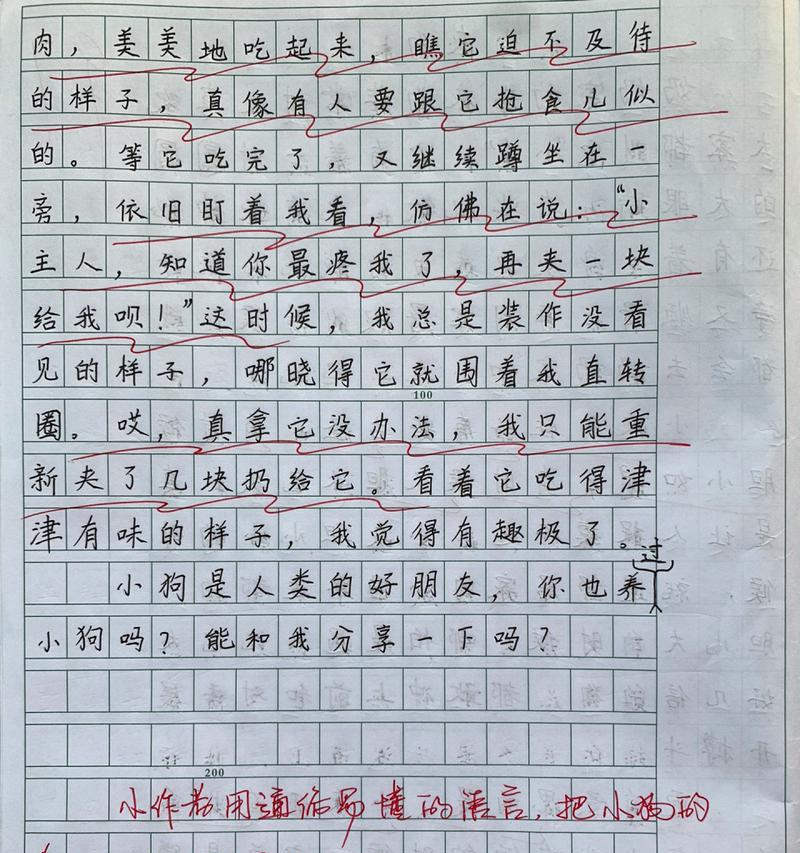 肉，美美地吃起来，瞧它迫不及待
的样子，真像有人要跟它抢食儿似
的。等它吃完了，又继续蹲坐在一
旁，依旧盯着我看，仿佛在说：“小
主人，知道你最疼我了，再夹一块
给我呗！”这时候，我总是装作没看
见的样子，哪晓得它就围着我直转
100
圈。哎，真拿它没办法，我只能重
新夹了几块扔给它。看着它吃得津
津有味的样子，我觉得有趣极了。
过
小狗是人类的好朋友，你也养
小狗吗？能和我分享一下吗？
200
小作者用通俗易懂的语言，把小狗的